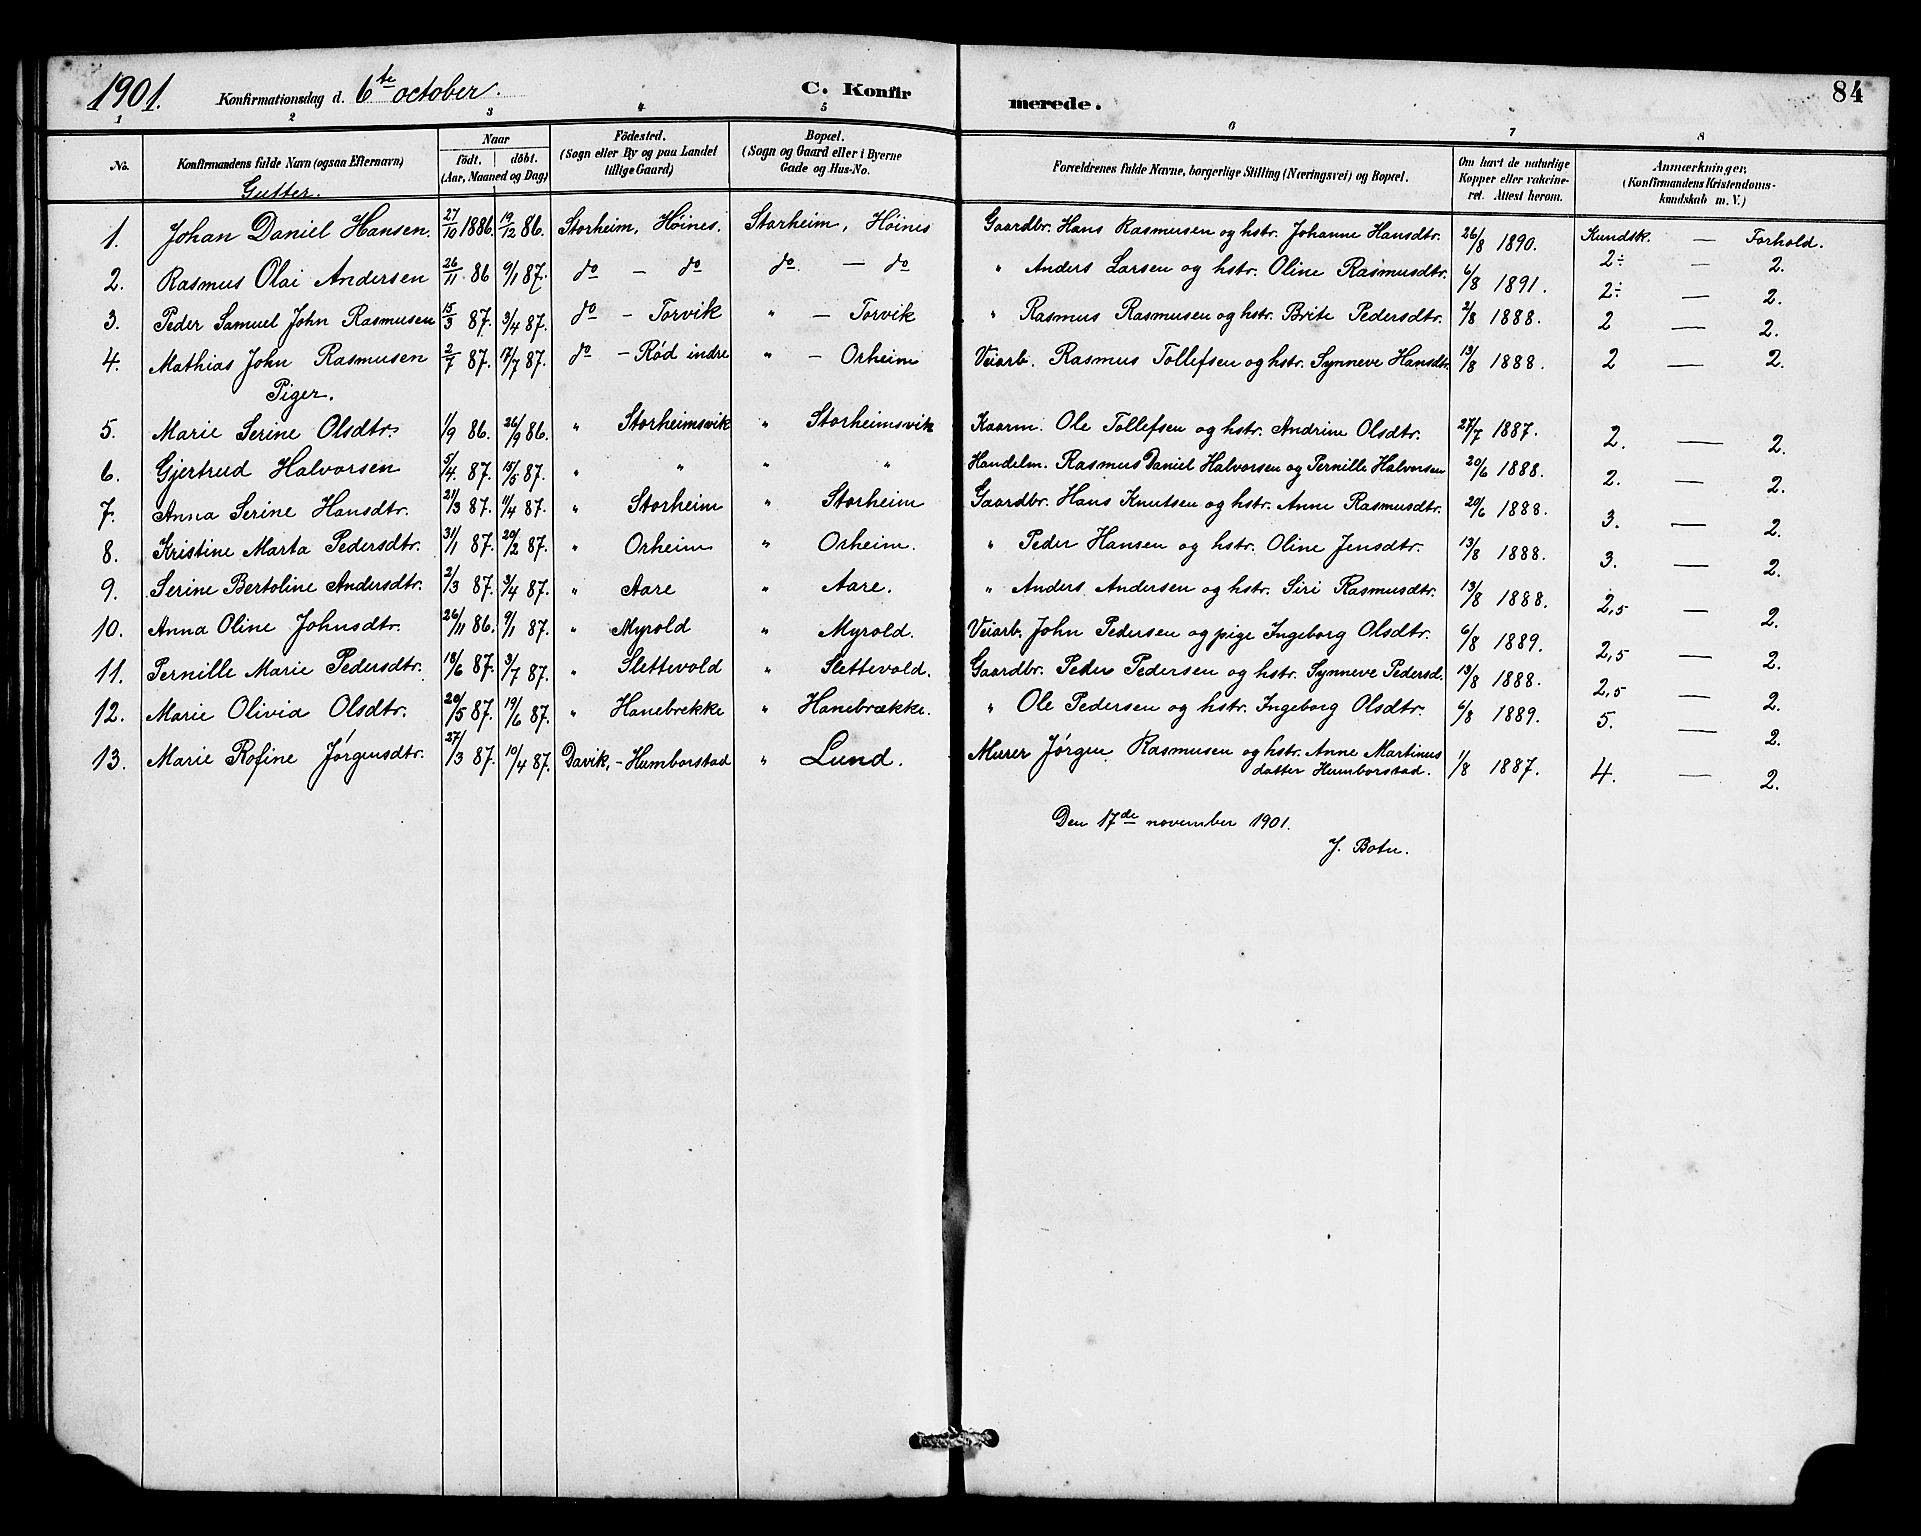 1901. Konfirmationsdag d. 6te october. C. Konfirmerede. 84
1 2 3 4 5 6 7 8
No. Konfirmandens fulde Navn (ogsaa Efternavn) Naar födt. döbt. (Aar, Maaned og Dag) Födested. (Sogn eller By og paa Landet tillige Gaard) Bopæl. (Sogn og Gaard eller i Byerne Gade og Hus-No. Forældrenes fulde Navne, borgerlige Stilling (Næringsvei) og Bopæl. Om havt de naturlige Kopper eller vakcineret. Attest herom. Anmærkninger, (Konfirmandens Kristendomskundskab m. V.)
Gutter.
Kundsk. — Forhold.
1. Johan Daniel Hansen. 27/10 1886. 19/12 86. Storheim, Høines. Storheim, Høines Gaardbr. Hans Rasmusen og hstr. Johanne Hansdtr. 26/8 1890. 2÷ — 2.
2. Rasmus Olai Andersen 26/11 86 9/1 87. do — do do. — do " Anders Larsen og hstr. Oline Rasmusdtr. 6/8 1891. 2÷ — 2.
3. Peder Samuel John Rasmusen 15/3 87. 3/4 87. do — Torvik " — Torvik " Rasmus Rasmusen og hstr. Brite Pedersdtr. 2/8 1888. 2 — 2.
4. Mathias John Rasmusen 2/7 87. 17/7 87. do — Rød indre " — Orheim Veiarb. Rasmus Tollefsen og hstr. Synneve Hansdtr. 13/8 1888. 2 — 2.
Piger.
5. Marie Serine Olsdtr. 1/9 86. 26/9 86. " Storheimsvik " Storheimsvik Kaarm. Ole Tollefsen og hstr. Andrine Olsdtr. 27/7 1887. 2. — 2.
6. Gjertrud Halvorsen 5/4. 87. 15/5 87. " " " " Handelm. Rasmus Daniel Halvorsen og Pernille Halvorsen 20/6 1888. 2. — 2.
7. Anna Serine Hansdtr. 21/3 87. 11/4 87. " Storheim " Storheim Gaardbr. Hans Knutsen og hstr. Anne Rasmusdtr. 20/6 1888. 3. — 2.
8. Kristine Marta Pedersdtr. 31/1 87. 20/2 87. " Orheim " Orheim. " Peder Hansen og hstr. Oline Jensdtr. 13/8 1888. 3. — 2.
9. Serine Bertoline Andersdtr. 2/3 87. 3/4 87. " Aare " Aare. " Anders Andersen og hstr. Siri Rasmusdtr. 13/8 1888. 2,5 — 2.
10. Anna Oline Johnsdtr. 26/11 86. 9/1 87. " Myrold " Myrold. Veiarb. John Pedersen og pige Ingeborg Olsdtr. 6/8 1889. 2,5 — 2.
11. Pernille Marie Pedersdtr. 13/6 87. 3/7 87. " Slettevold " Slettevold. Gaardbr. Peder Pedersen og hstr. Synneve Pedersd. 13/8 1888. 2,5 — 2.
12. Marie Olivia Olsdtr. 20/5 87. 19/6 87. " Hanebrekke " Hanebrække. " Ole Pedersen og hstr. Ingeborg Olsdtr. 6/8 1889. 5. — 2.
13. Marie Rofine Jørgensdtr. 27/3 87. 10/4 87. Davik, - Humborstad " Lund. Murer Jørgen Rasmusen og hstr. Anne Martinus
datter Humborstad. 1/8 1887. 4. — 2.
Den 17de november 1901.
J. Botn.